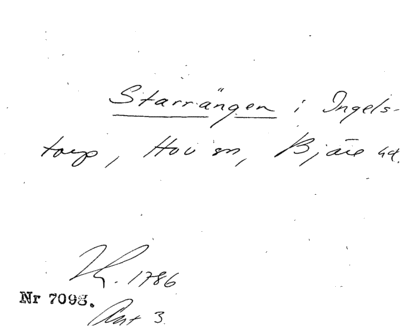 Starrängen i Ingels-
torp, Hov sn, Bjäre hd.
1786
Nr 7093.
Akt 3.